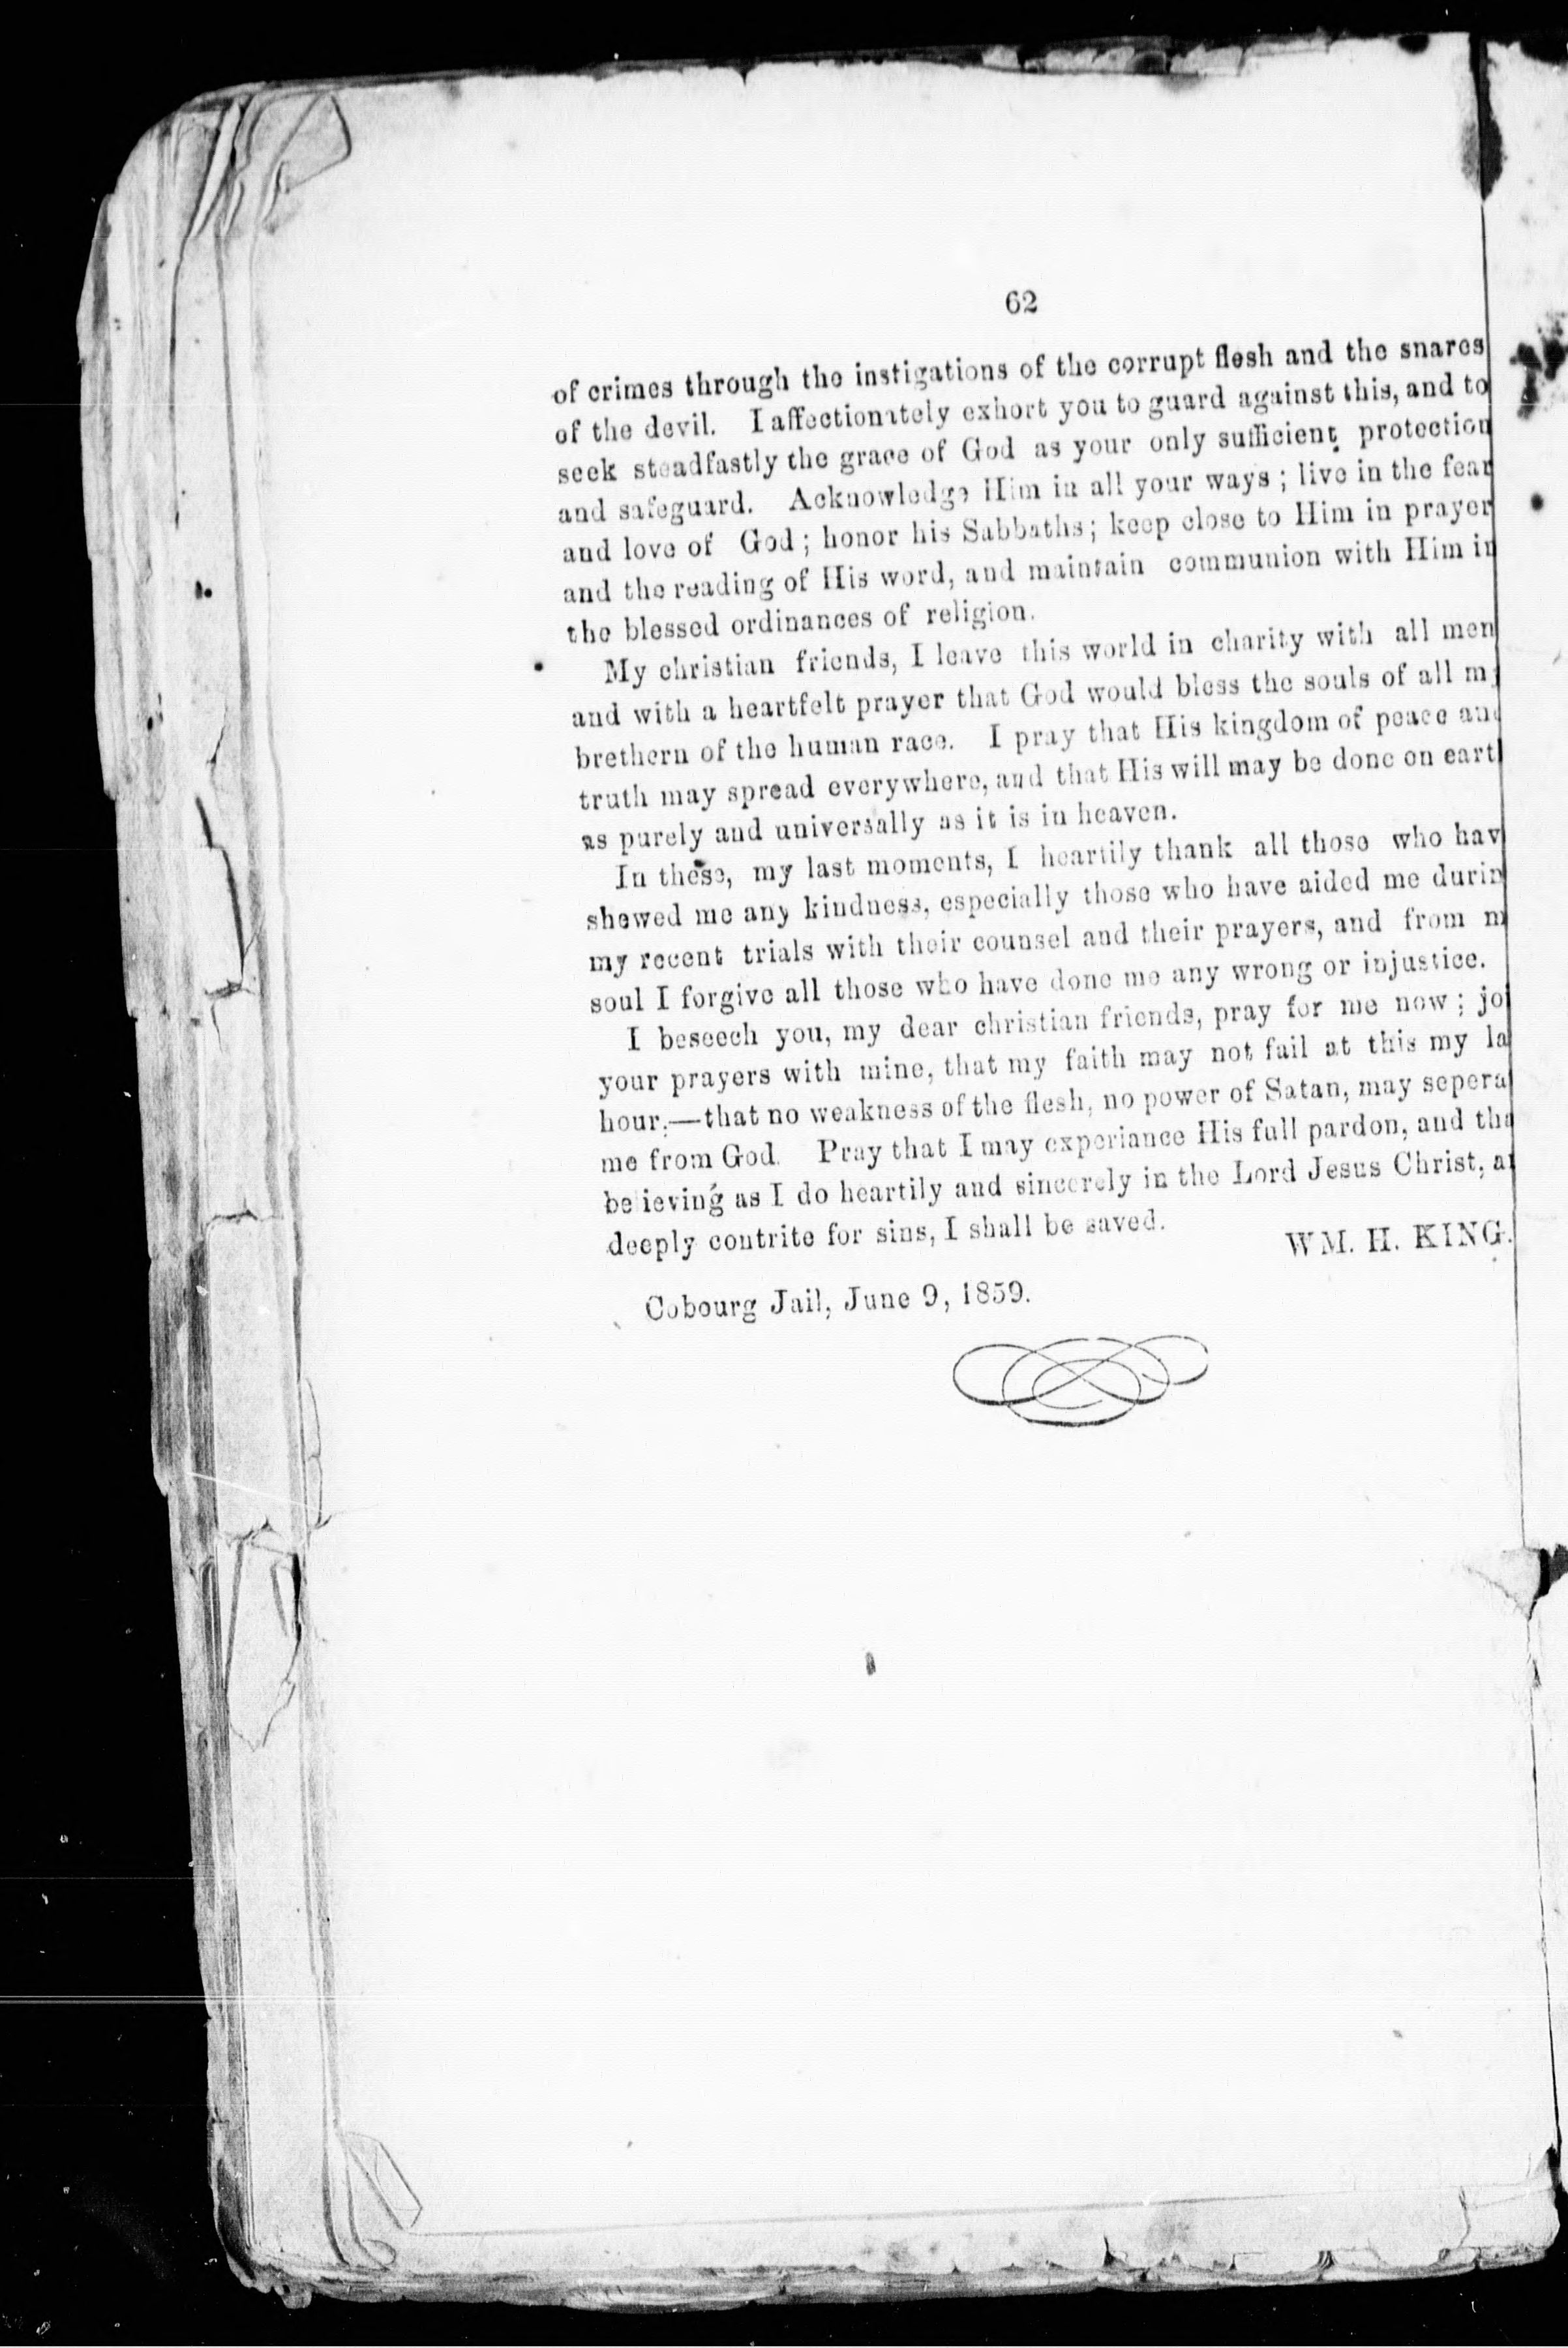 62
of crimes through the instigations of the corrupt flesh and the snares
of the devil. I affectionately exhort you to guard against this, and to
seek steadfastly the grace of God as your only sufficient protection
and safeguard. Acknowledge Him in all your ways ; live in the fear
and love of God ; honor his Sabbaths ; keep close to Him in prayer
and the reading of His word, and maintain communion with Him in
the blessed ordinances of religion.
My christian friends, I leave this world in charity with all men
and with a heartfelt prayer that God would bless the souls of all my
brethern of the human race. I pray that His kingdom of peace and
truth may spread everywhere, and that His will may be done on eart
as purely and universally as it is in heaven.
In these, my last moments, I heartily thank all those who hav
shewed me any kindness, especially those who have aided me durin
my recent trials with their counsel and their prayers, and from m
soul I forgive all those who have done me any wrong or injustice.
I beseech you, my dear christian friends, pray for me now ; joi
your prayers with mine, that my faith may not fail at this my la
hour,—that no weakness of the flesh, no power of Satan, may sepera
me from God. Pray that I may experiance His full pardon, and tha
believing as I do heartily and sincerely in the Lord Jesus Christ, a
deeply contrite for sins, I shall be saved.
WM. H. KING.
Cobourg Jail, June 9, 1859.